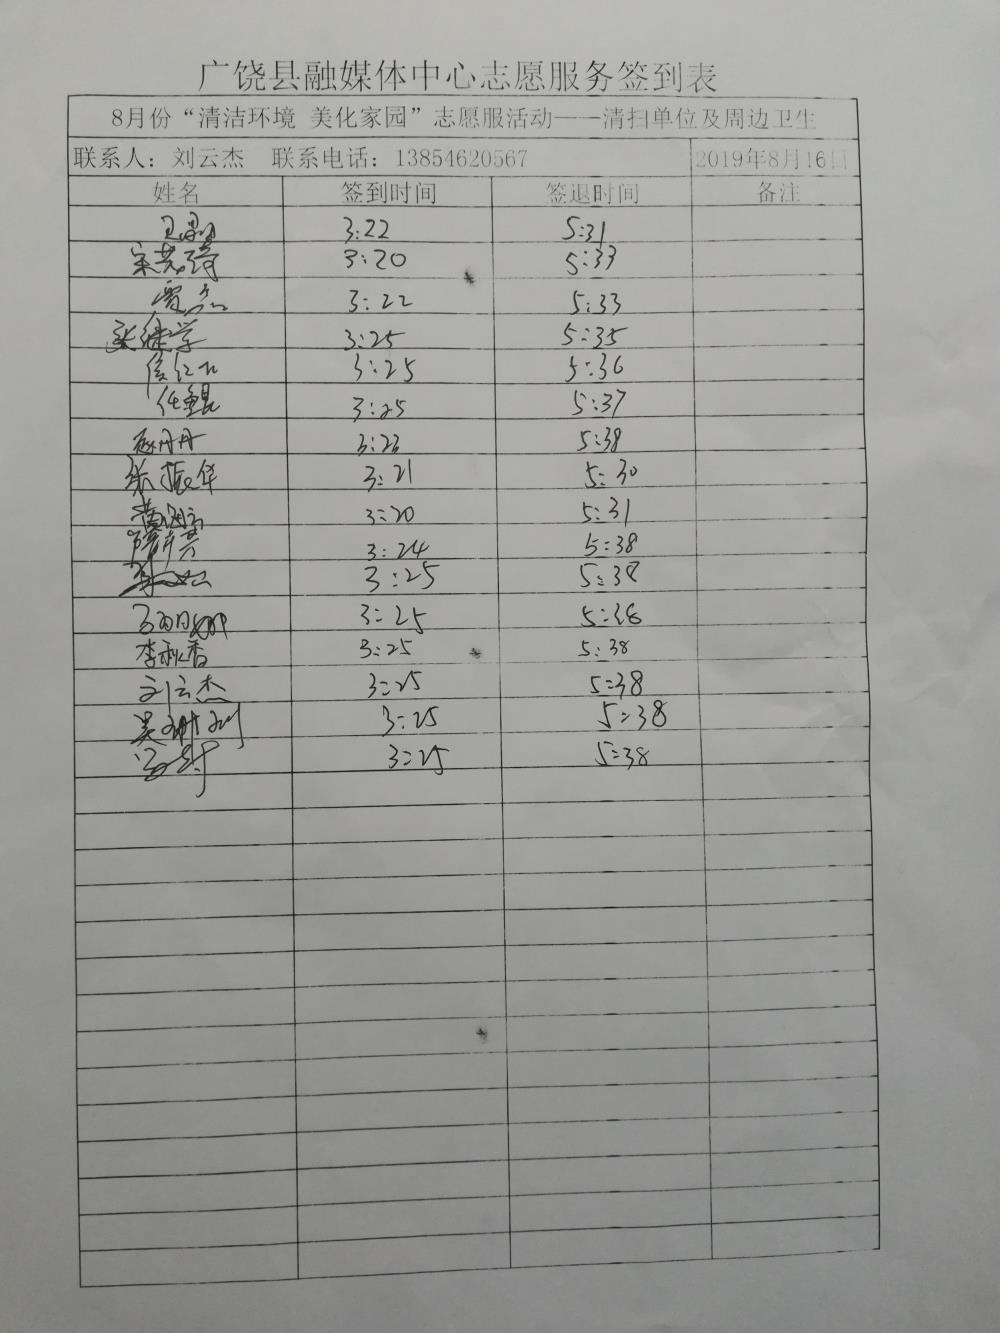 广饶县融媒体中心志愿服务签到表
8月份“清洁环境 美化家园”志愿服活动——清扫单位及周边卫生
联系人：刘云杰 联系电话：13854620567 2019年8月16日
姓名 签到时间 签退时间 备注
3:22 5:31
3:20 5:33
3:22 5:33
张继学 3:25 5:35
3:25 5:36
任鲲 3:25 5:37
3:23 5:38
张振华 3:21 5:30
3:20 5:31
3:24 5:38
3:25 5:38
3:25 5:38
李秋香 3:25 5:38
刘云杰 3:25 5:38
3:25 5:38
3:25 5:38